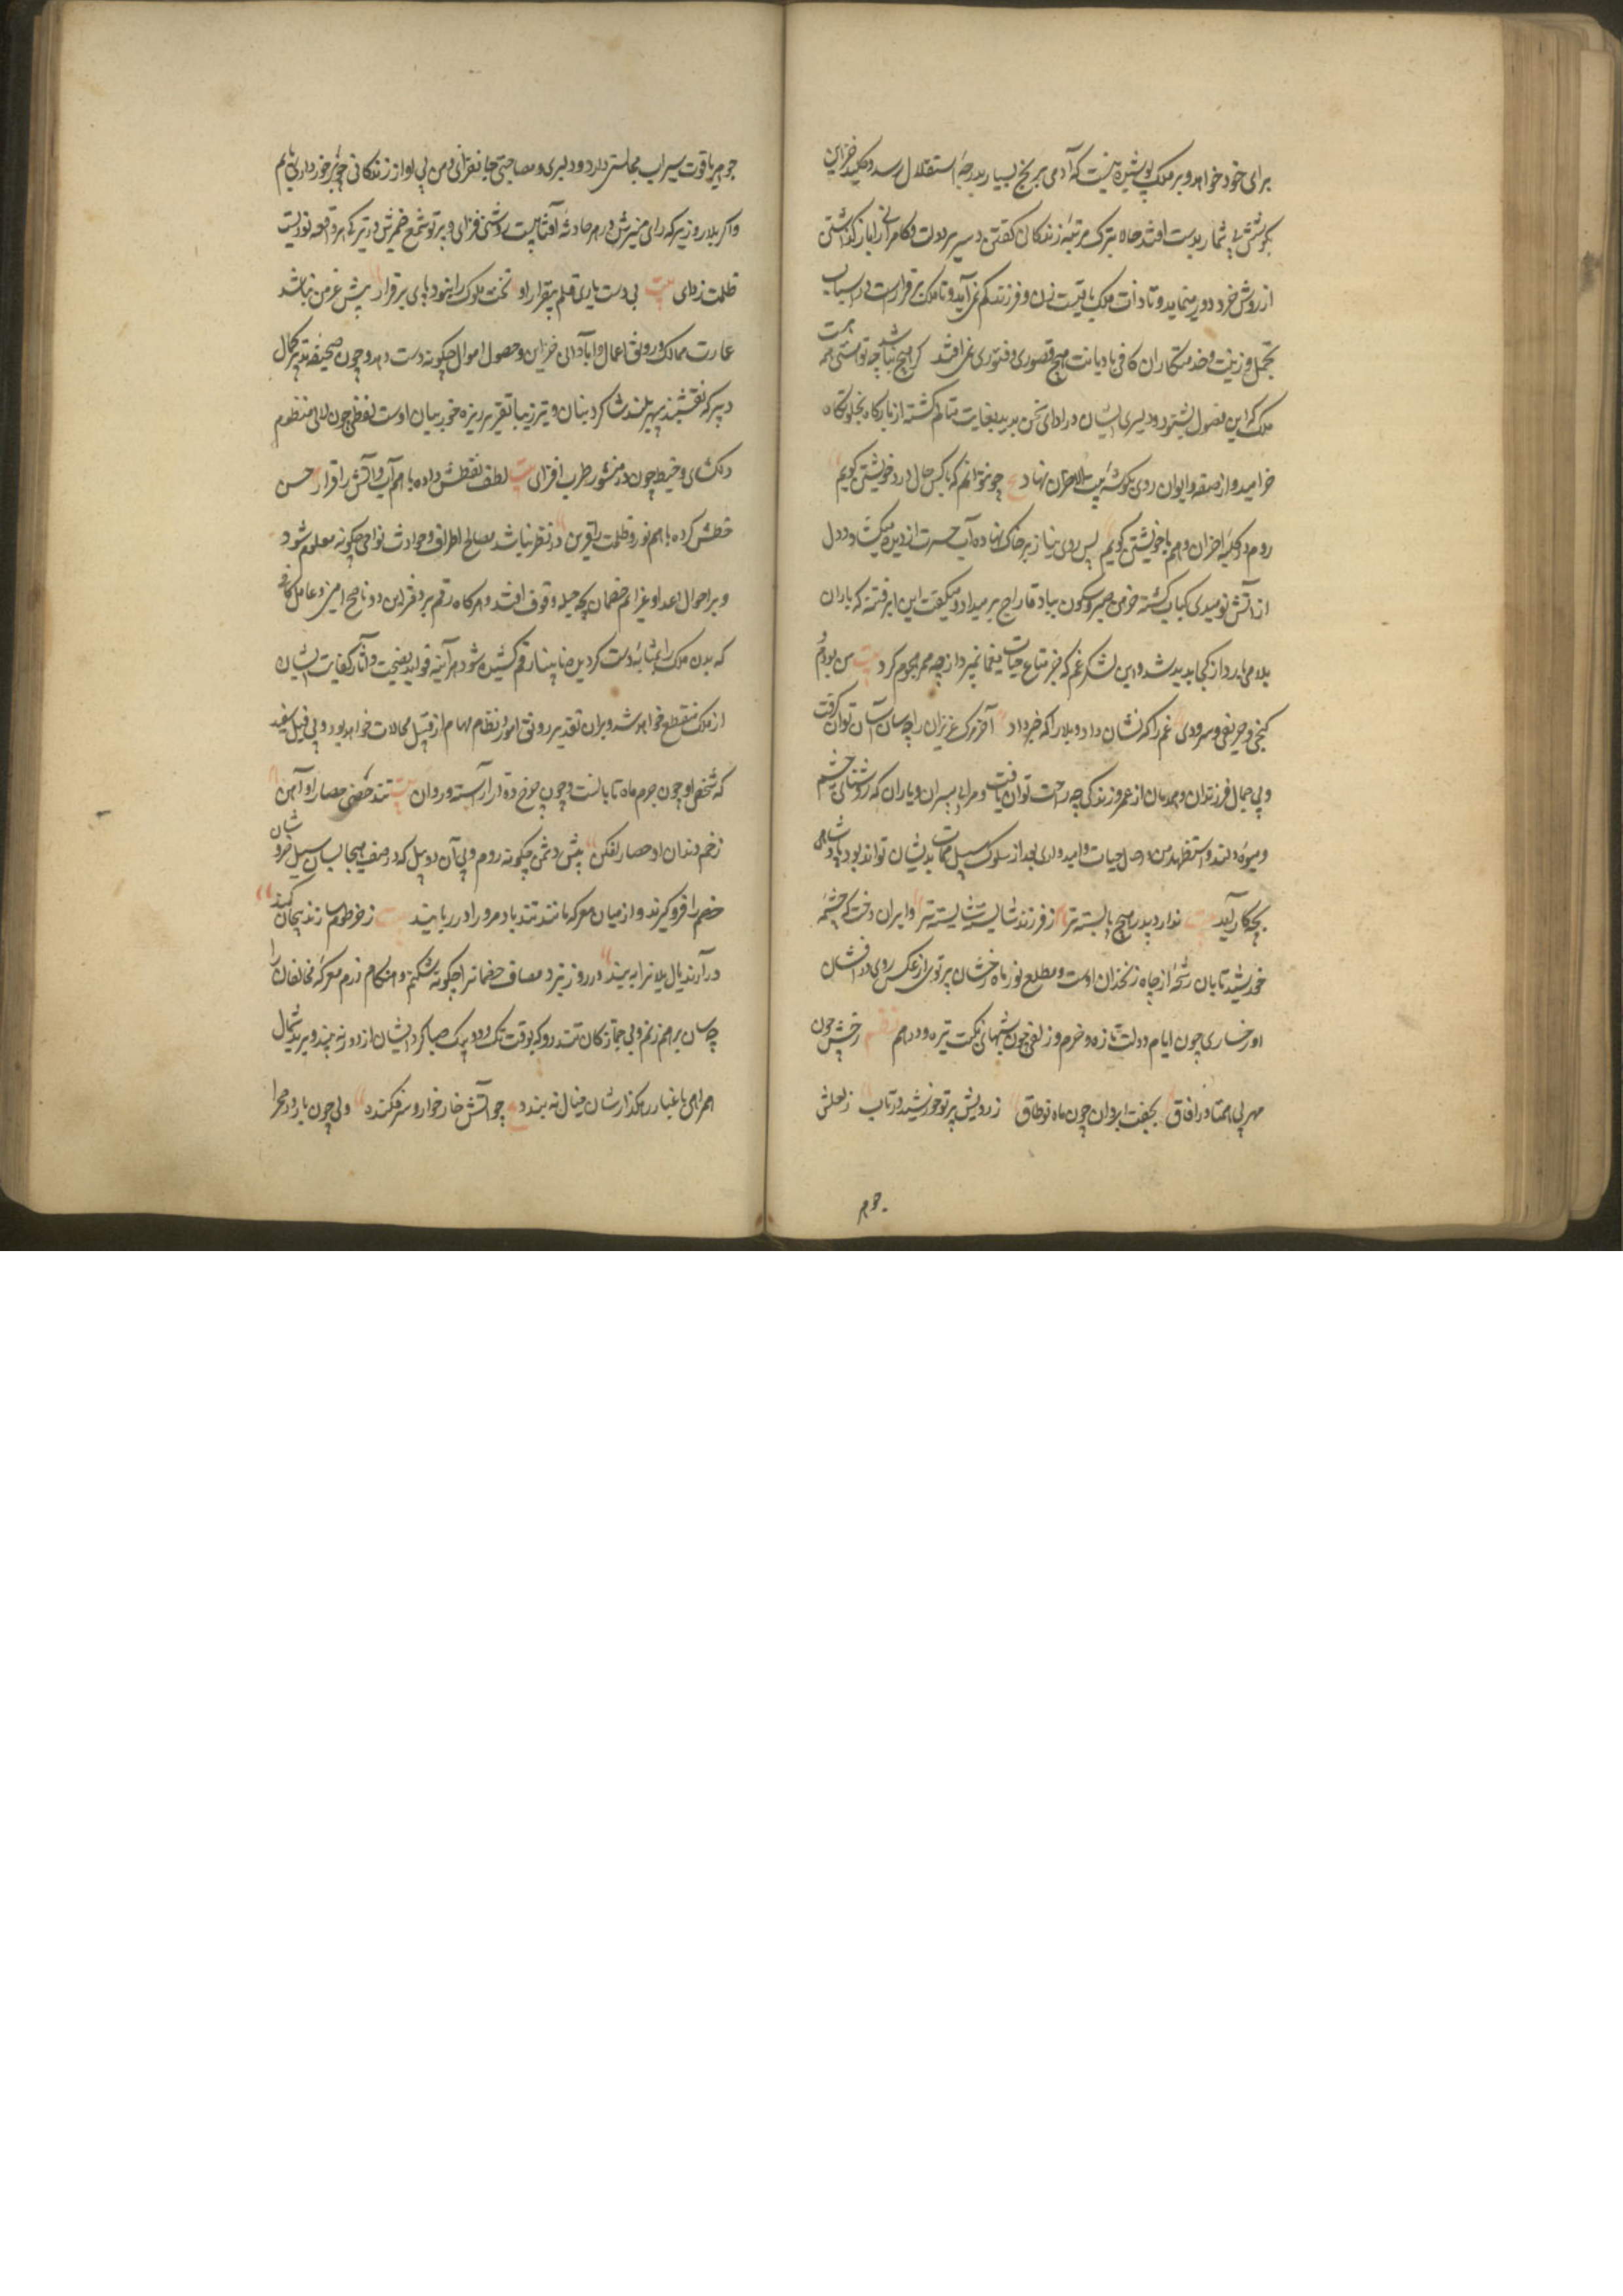 برای خود خواهد و بر ملک پوشیده نیست که آدمی برنج بسیار بدرجهٔ استقلال رسد و کلید خزاین
بکوشش بی شمار بدست افتد جاه بترک مرتبهٔ زندگان گفتن و سریر دولت و کامرانی را باز گذاشتن
از روش خرد دور مینماید و تا ذات ملک باقیست زن و فرزند کم نمی آید و تا ملک برقرارست بی اسباب
تجمل و زینت و خدمتکاران کافی با دیانت هیچ قصوری و فتوری نمی افتد گر هیچ نباشد چه تو هستی همه هست
ملک که این فصول بشنود و دلیری ایشان در ادای سخن بدید بغایت متالم گشته از بارگاه بخلوتگاه
خرامید و از صفه و ایوان روی بگوشهٔ بیت الاحزان نهاد ع چو نتوانم که باکس حال درد خویشتن گویم
روم در کلبهٔ احزان و هم با خویشتن گویم پس روی نیاز بر خاک نهاده آب حسرت از دیده میگشاد و دل
از آتش نومیدی کباب گشته خرمن صبر و سکون بباد تاراج بر میداد و میگفت این ابر فتنه که باران
بلا می بارد از کجا پدید شد و این لشکر غم که جز متاع حیات بیغما نمیبرد از چه ممر هجوم کرد بیت من بودم و
کنجی و حریفی و سرودی غم را که نشان داد و بلا را که خبر داد آخر مرگ عزیزان را چه سان آسان توان گرفت
و بی جمال فرزندان و همدمان از عمر و زندگی چه راحت توان یافت و مرا بی پسران و یاران که روشنائی چشم
و میوهٔ دلند و استظهار من در حال حیات و امیدواری بعد از سلوک سبیل ممات بدیشان تواند بود پادشاهی
بچه کار آید بیت ندارد پدر هیچ بایسته تر ز فرزند شایسته شایسته تر و ایران دخت که چشمهٔ
خورشید تابان رشحهٔ از چاه زنخدان اوست و مطلع نور ماه درخشان پرتوی از عکس روی درافشان
او رخساری چون ایام دولت تازه و خرم و زلفی چون شبهای نکبت تیره و درهم نظم رخش چون
مهر بی همتا در آفاق بجفت ابروان چون ماه نو طاق ز رویش پرتو خورشید در تاب ز لعلش
جوم
جوهر یاقوت سیراب مجالستی دارد و دلبری و مصاحبتی جانفزائی و من بی او از زندگانی چون برخورداری یابم
و اگر بلار وزیر که رای منیرش در هر حادثه آفتابیست روشنی فزای و پرتو شمع ضمیرش در تیرگی هر واقعه نوریست
ظلمت زدای بیت بی دست یاری قلم بیقرار او تخت ملوک را نبود پای برقرار پیش عرض نباشد
عمارت ممالک و رونق اعمال و آبادانی خزاین و حصول اموال چگونه دست دهد و چون صحیفه تدبیر کمال
دبیر که نقشبند سپهر بلند شاگرد بنان و تیر زیبا تقریر ریزه خور بیان اوست لفظی چون لالی منظوم
دلگشای و خطی چون در منثور طرب افزای بیت لطف لفظش داده باهم آب و آتش را قرار حسن
خطش کرده باهم نور و ظلمت را قرین در نظر نباشد مصالح اطراف و حوادث نواحی چگونه معلوم شود
و بر احوال اعدا و عزایم خصمان بچه حیله وقوف افتد و هرگاه رقم بر دفتر این دو ناصح امین و عامل کافی
که بدن ملک را بمثابهٔ دست گردیده نا بینا رقم کشیده شود هر آینه فواید نصیحت و آثار کفایت ایشان
از ملک منقطع خواهد شد و بران تقدیر رونق امور و نظام مهام از قبیل محالات خواهد بود و بی فیل سفید
که شخص او چون جرم ماه تابانست و چون چرخ دوار آراسته و روان بیت تند خصمی حصار او آهن
زخم دندان او حصار افکن پیش دشمن چگونه روم و بی آن دو پیل که در صف هیجا بسان سیل خروشان
خصم را فرو گیرند و از میان معرکه مانند تند باد مرد را در ربایند بیت ز خرطومها زند پیچان کمند
در آرند یال یلانرا به بند در روز نبرد مصاف خصمانرا چگونه شکنم و هنگام رزم معرکه مخالفان را
چه سان برهم زنم و بی جمازگان تند رو که بوقت تک و دو پیک صبا گرد ایشان از دور نه بیند و برید شمال
همراهی با غبار رهگذارشان خیال نه بندد ع چو آتش خار خوار و سرفکنده ولی چون باد در صحرا